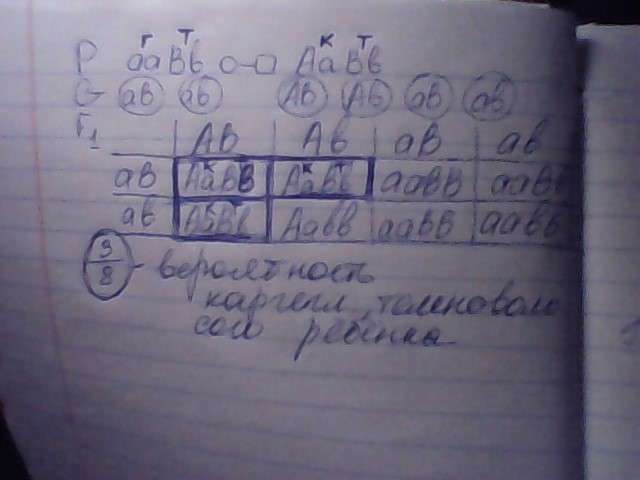 г т к т
P aaBb о—□ AaBb
G aB ab AB Ab aB ab
F₁ AB Ab aB ab
aB AaBB AaBb aaBB aaBb
ab AaBb Aabb aaBB aabb
3/8 - вероятность
темноволо
ребёнка